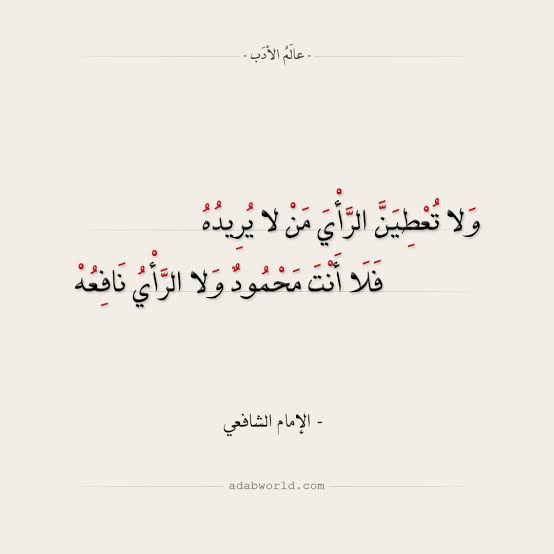 - عالَمُ الأدَب -
وَلا تُعْطِيَنَّ الرَّأْيَ مَنْ لا يُرِيدُهُ
فَلَا أَنْتَ مَحْمُودٌ وَلا الرَّأْيُ نَافِعُهْ
- الإمام الشافعي
adabworld.com